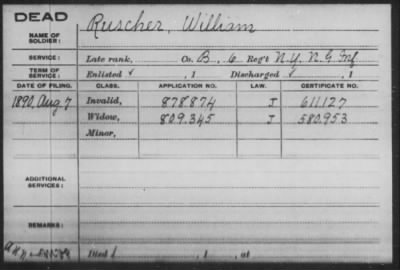 DEAD
NAME OF SOLDIER: Ruscher, William
SERVICE: Late rank, Co. B, 6 Reg't N.Y. N.G. Inf
TERM OF SERVICE: Enlisted , 1 Discharged , 1
DATE OF FILING. CLASS. APPLICATION NO. LAW. CERTIFICATE NO.
1890, Aug 7 Invalid, 878874 J 611127
Widow, 809.345 J 580.953
Minor,
ADDITIONAL SERVICES:
REMARKS:
Died , 1 , at